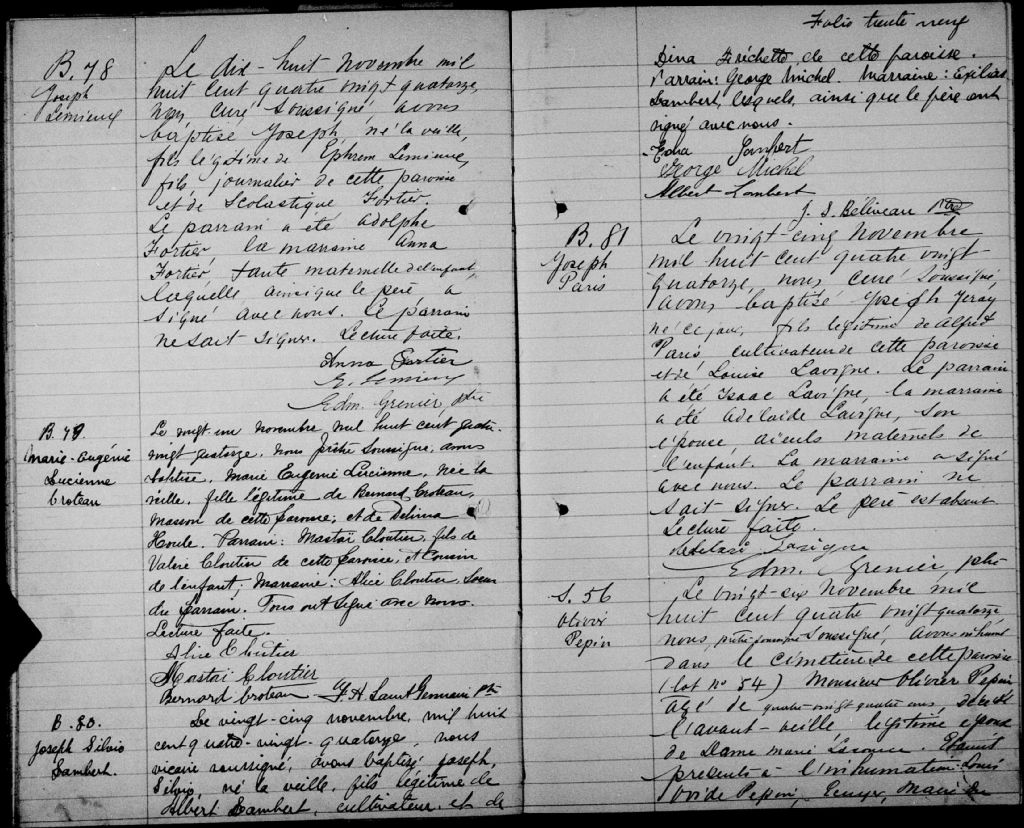 B. 78
Joseph
Lemieux
Le dix-huit novembre mil
huit cent quatre vingt quatorze,
nous, curé soussigné, avons
baptisé Joseph, né la veille,
fils légitime de Ephrem Lemieux,
fils, journalier de cette paroisse
et de Scolastique Fortier.
Le parrain a été Adolphe
Fortier, la marraine Anna
Fortier, tante maternelle de l'enfant,
laquelle, ainsi que le père a
signé avec nous. Le parrain
ne sait signer. Lecture faite.
Anna Fortier
E. Lemieux
Edm. Grenier, ptre
B. 79.
Marie-Eugénie
Lucienne
Croteau
Le vingt-un novembre mil huit cent quatre-
vingt quatorze, nous prêtre soussigné, avons
baptisé, Marie Eugenie Lucienne, née la
veille, fille légitime de Bernard Croteau,
Masson de cette paroisse, et de Delima
Houle. Parrain: Mastaï Cloutier, fils de
Valere Cloutier de cette paroisse, et cousin
de l'enfant; Marraine: Alice Cloutier, soeur
du parrain. Tous ont signé avec nous.
Lecture faite.
Alice Cloutier
Mastaï Cloutier
Bernard Croteau F. H. Saint Germain ptr
B. 80.
Joseph Silvio
Lambert.
Le vingt-cinq novembre, mil huit
cent quatre-vingt-quatorze, nous
vicaire soussigné, avons baptisé Joseph,
Silvio, né la veille, fils légitime de
Albert Lambert, cultivateur, et de
Folio trente neuf
Dina Fréchette de cette paroisse.
Parrain: George Michel. Marraine:
Lambert, lesquels, ainsi que le père ont
signé avec nous.
Lambert
George Michel
Albert Lambert
J. S. Béliveau Ptre
B. 81
Joseph
Paris
Le vingt-cinq novembre
mil huit cent quatre vingt
quatorze, nous, curé soussigné,
avons baptisé Joseph
né ce jour, fils légitime de Alfred
Paris, cultivateur de cette paroisse
et de Louise Lavigne. Le parrain
a été Isaac Lavigne, la marraine
a été Adelaide Lavigne, son
épouse aïeuls maternels de
l'enfant. La marraine a signé
avec nous. Le parrain ne
sait signer. Le père est absent
Lecture faite.
Lavigne
Edm. Grenier, ptre
S. 56
Olivier
Pepin
Le vingt-six novembre mil
huit cent quatre vingt quatorze
nous, prêtre soussigné, avons inhumé
dans le cimetière de cette paroisse
(lot no 54) Monsieur Olivier Pepin
agé de quatre-vingt quatre ans, décédé
l'avant-veille, légitime époux
de Dame Marie. Etaient
présents à l'inhumation: Louis
Ovide Pepin,